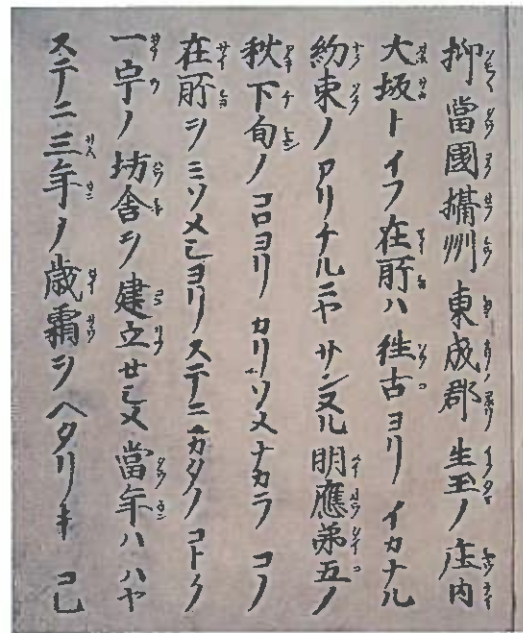 抑當國攝州東成郡生玉ノ庄内
大坂トイフ在所ハ徃古ヨリイカナル
約束ノアリケルニヤサンヌル明應第五ノ
秋下旬ノコロヨリカリソメナカラコノ
在所ヲミソメシヨリステニカタノコトク
一宇ノ坊舎ヲ建立セシメ當年ハハヤ
ステニ三年ノ歳霜ヲヘタリキコレ